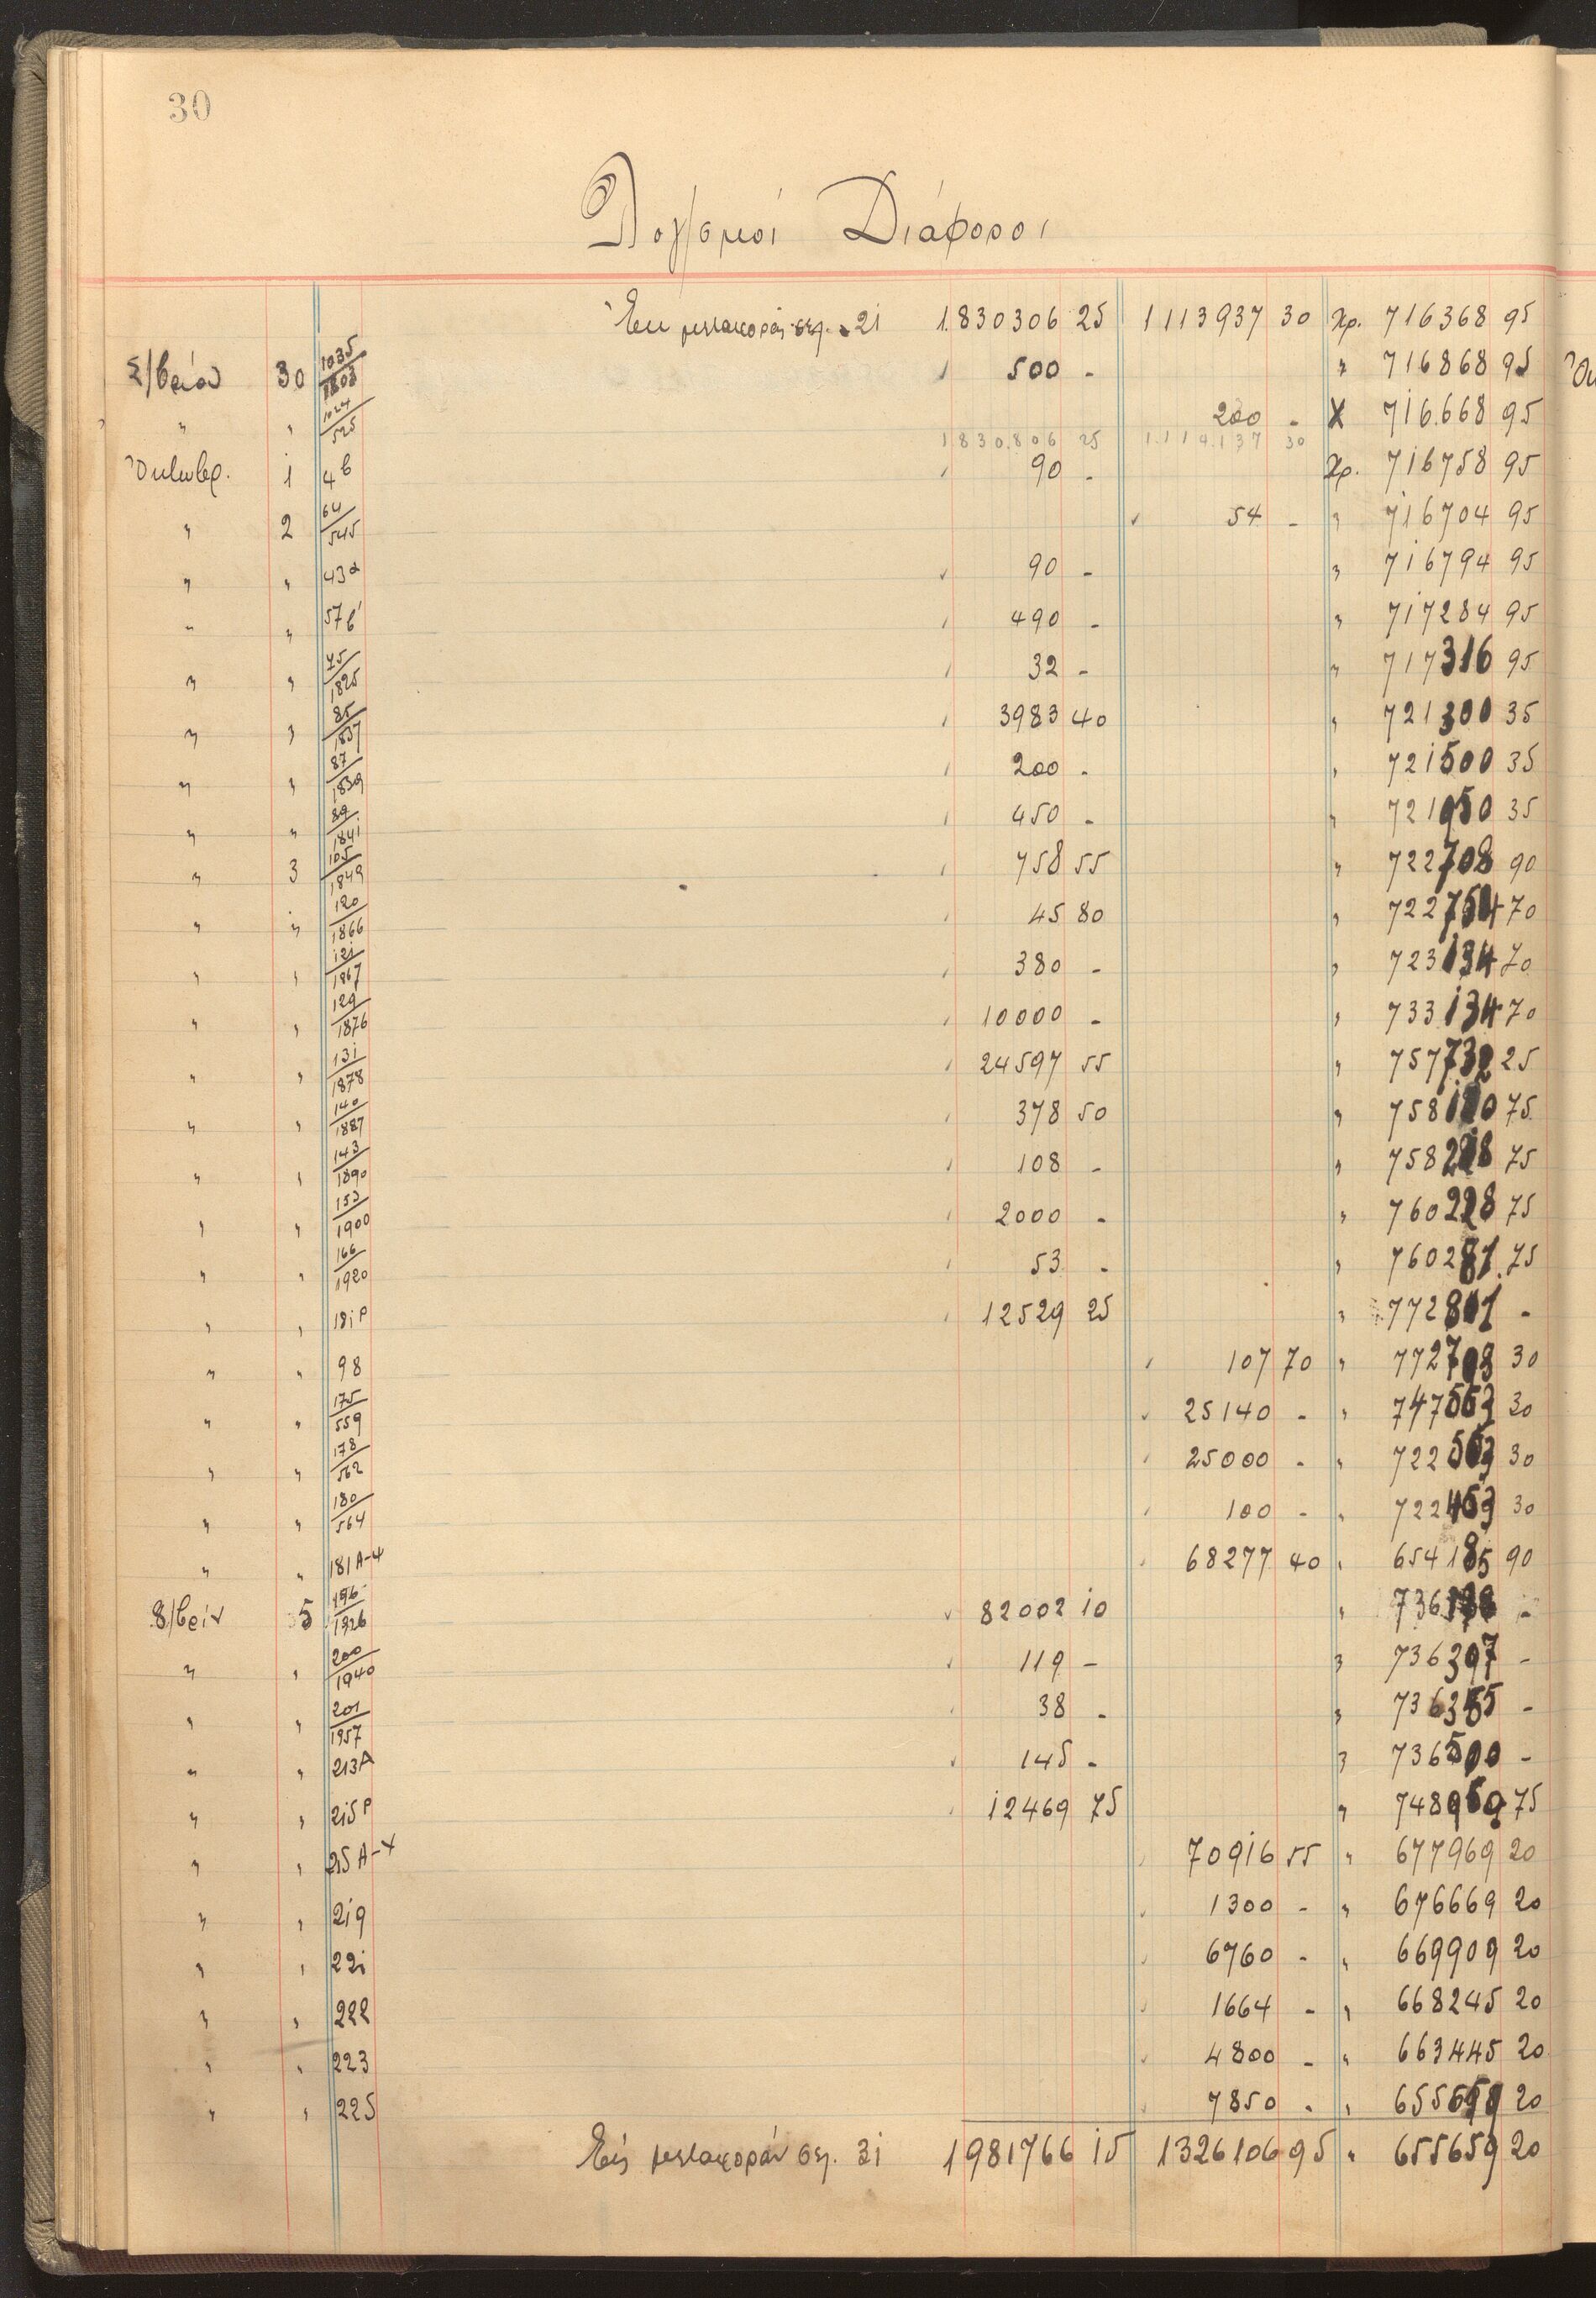 30
Λογ/σμοί Διάφοροι
Ἐκ μεταφορᾶς σελ. 21 1.830306 25 1113937 30 Χρ. 716368 95
Σ/βρίου 30 1035/1803 500 - " 716868 95
" " 1024/525 200 - Χ 716.668 95
1.830.806 25 1.114.137 30
Ὀκτωβρ. 1 4β 90 - Χρ. 716758 95
" 2 64/545 54 - " 716704 95
" " 43α 90 - " 716794 95
" " 57β' 490 - " 717284 95
" " 75/1825 32 - " 717316 95
" " 85/1837 3983 40 " 721300 35
" " 87/1839 200 - " 721500 35
" " 89/1841 450 - " 721950 35
" 3 105/1849 758 55 " 722708 90
" " 120/1866 45 80 " 722754 70
" " 121/1867 380 - " 723134 70
" " 129/1876 10000 - " 733134 70
" " 131/1878 24597 55 " 757732 25
" " 140/1887 378 50 " 758110 75
" " 143/1890 108 - " 758218 75
" " 153/1900 2000 - " 760228 75
" " 166/1920 53 - " 760281.75
" " 181Ρ 12529 25 " 772811 -
" " 98 107 70 " 772703 30
" " 175/559 25140 - " 747563 30
" " 178/562 25000 - " 722563 30
" " 180/564 100 - " 722463 30
" " 181Α-4 68277 40 " 654185 90
8/βρίου 5 196/1926 82002 10 " 736188 -
" " 200/1940 119 - " 736307 -
" " 201/1957 38 - " 736345 -
" " 213Α 145 - " 736500 -
" " 215Ρ 12469 75 " 748959 75
" " 215Α-4 70916 55 " 677969 20
" " 219 1300 - " 676669 20
" " 221 6760 - " 669909 20
" " 222 1664 - " 668245 20
" " 223 4800 - " 663445 20
" " 225 7850 - " 655659 20
Εἰς μεταφοράν σελ. 31 1981766 15 1326106 95 " 655659 20